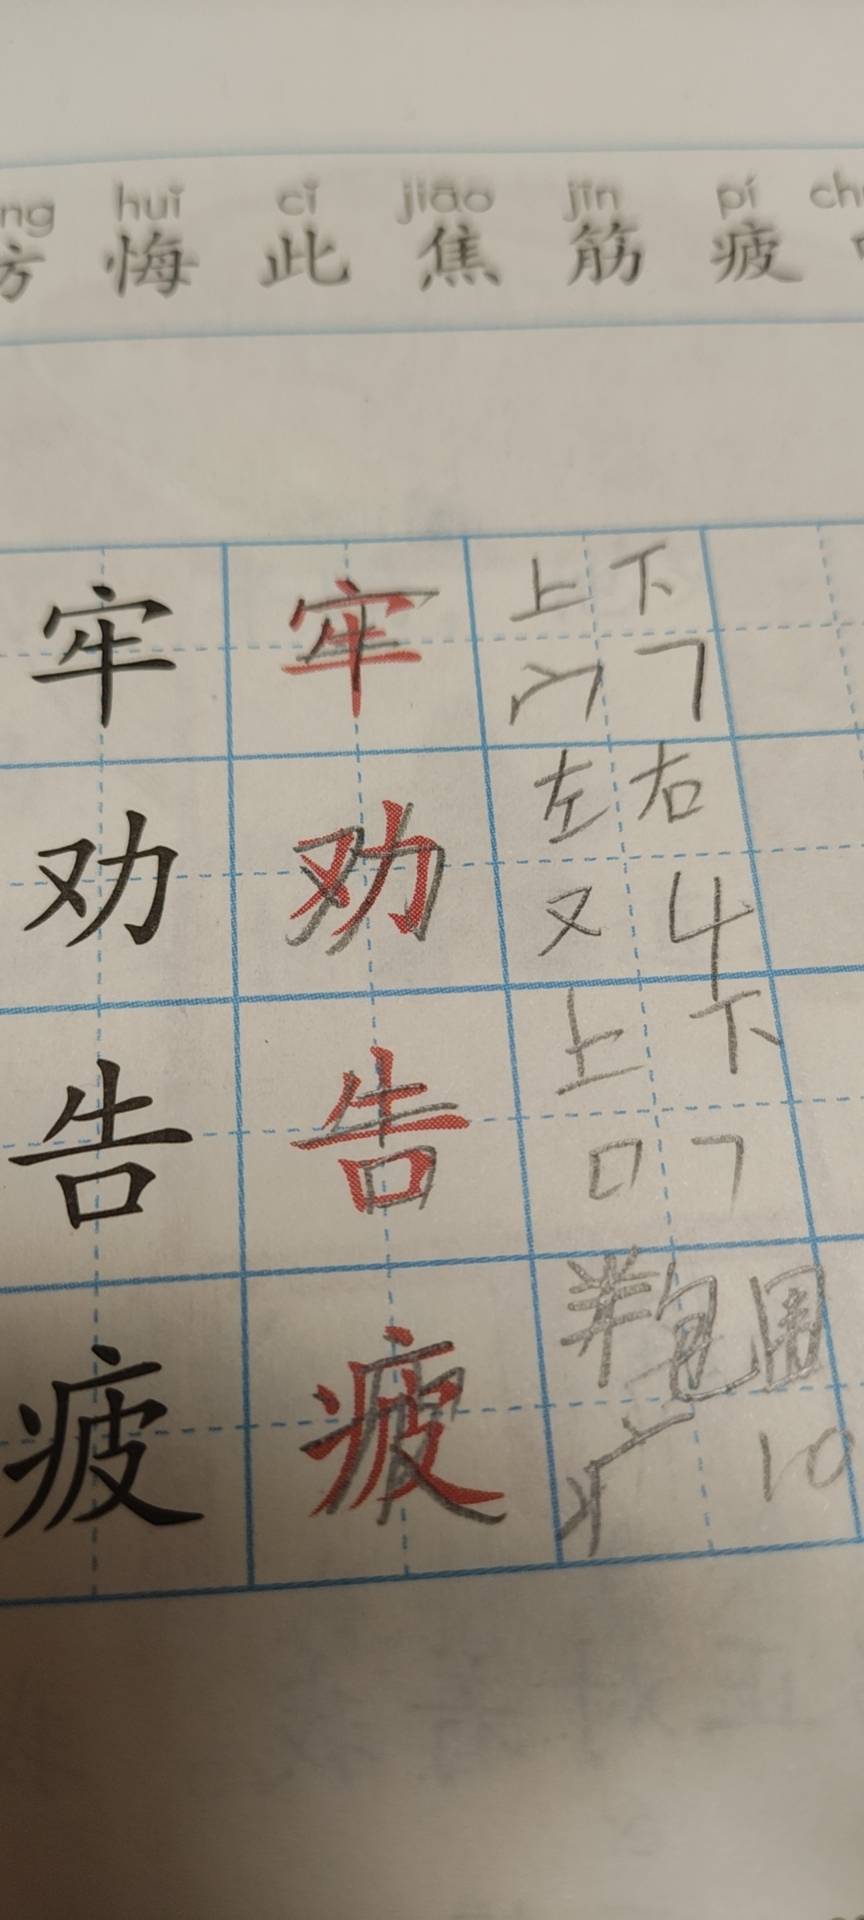 ng huǐ cǐ jiāo jīn pí
悔 此 焦 筋 疲
牢 牢 上 下
宀 7
劝 劝 左 右
又 4
告 告 上 下
口 7
疲 疲 半包围
疒 10